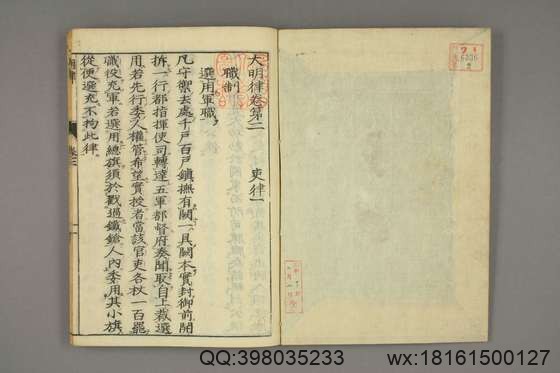 大明律卷第二　吏律一
職制
選用軍職
凡守禦去處千戶百戶鎮撫有闕一具闕本實封御前開
拆一行都指揮使司轉達五軍都督府奏聞取自上裁選
用若先行委人權管希望實授者當該官吏各杖一百罷
職役充軍若選用總旗須於戳過鐵鎗人內委用其小旗
從便選充不拘此律
QQ:398035233
wx:18161500127